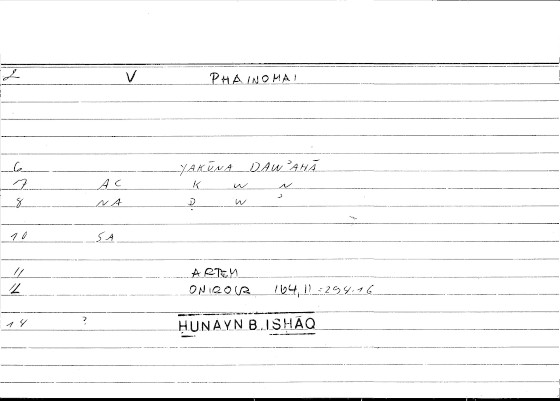 2 V PHAINOMAI
6 YAKŪNA DAWʾAHĀ
7 AC K W N
8 NA Ḍ W ʾ
10 SA
11 ARTEM
12 ONIROCR 164,11=294.16
14 ? ḤUNAYN B. ISḤĀQ